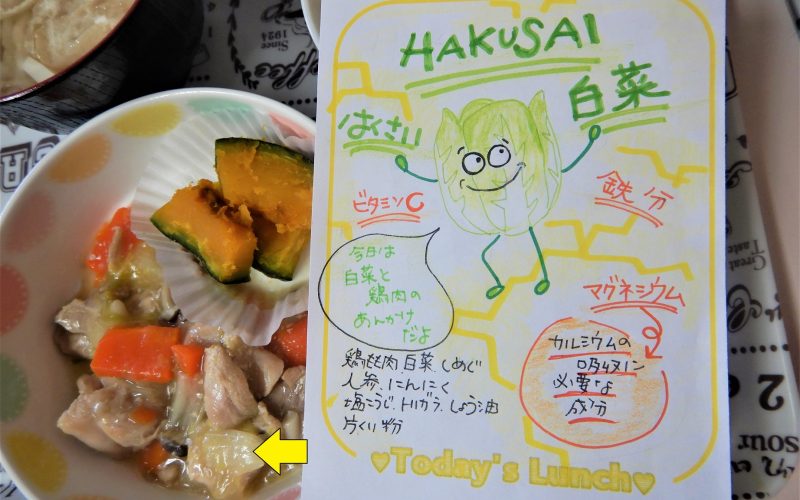 HAKUSAI
白菜
はくさい
ビタミンC
鉄分
今日は
白菜と
鶏肉の
あんかけ
だよ
マグネシウム
カルシウムの
吸収に
必要な
成分
鶏もも肉、白菜、しめじ
人参、にんにく
塩こうじ、トリガラ、しょう油
片くり粉
♥Today's Lunch♥
Since
1924
Coffee
Great
Taste
sour